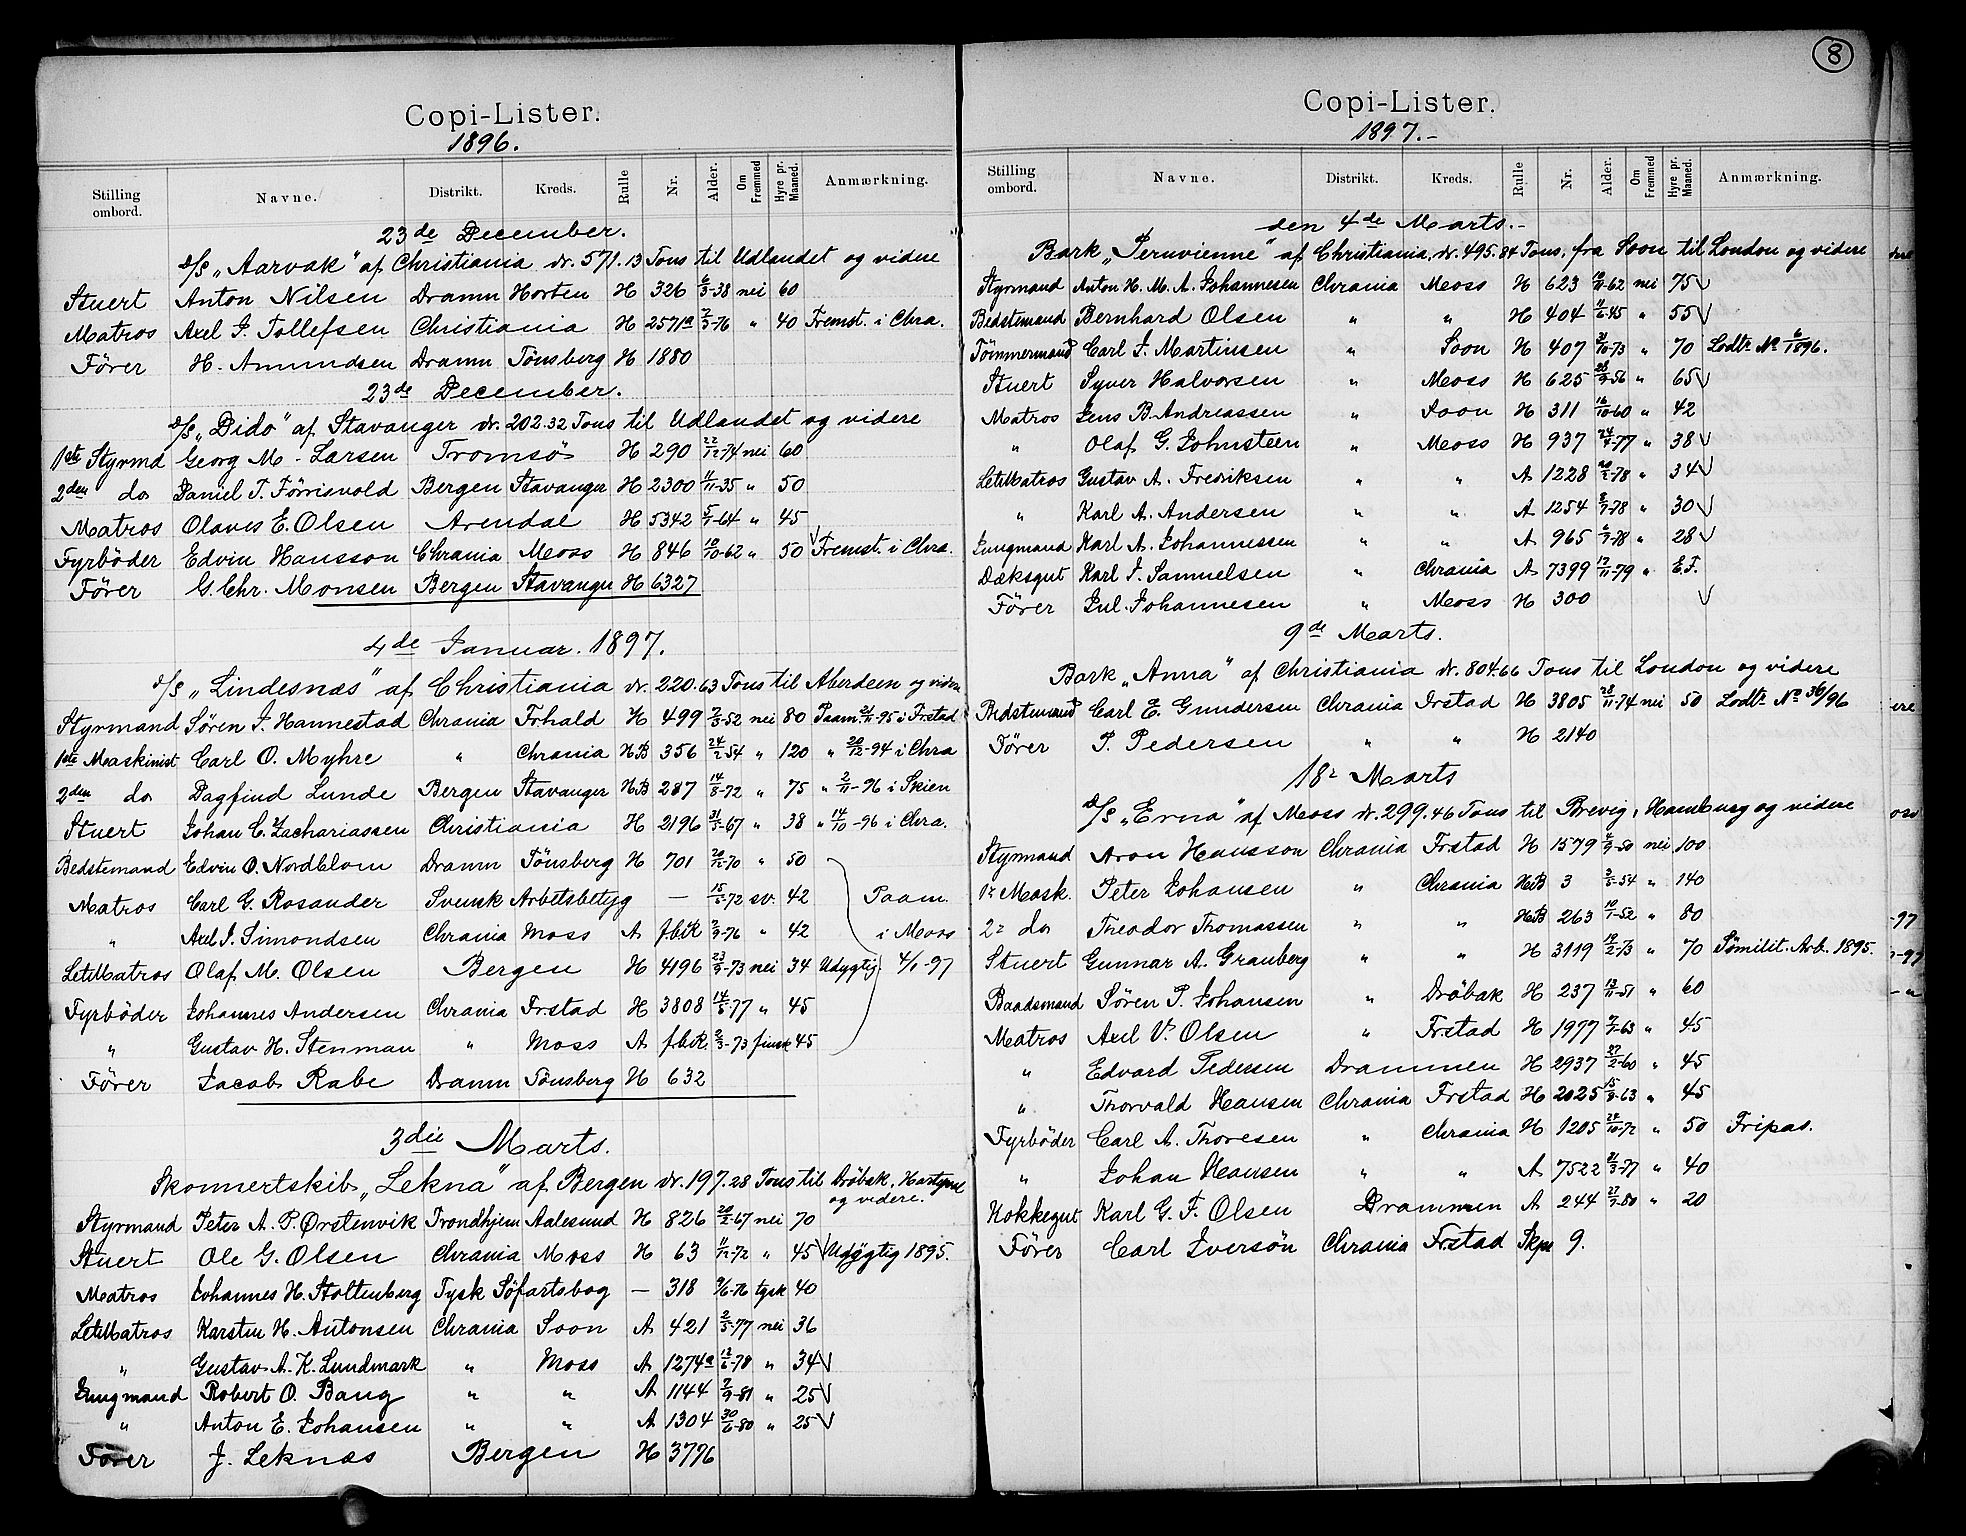 Copi-Lister.
1896.
Stilling ombord. Navne. Distrikt. Kreds. Rulle Nr. Alder. Om Fremmed Hyre pr. Maaned. Anmærkning.
23de December.
D/S „Aarvak" af Christiania dr. 571.13 Tons til Udlandet og videre
Stuert Anton Nilsen Dramn Horten H 326 6/3-38 nei 60
Matros Axel J. Tollefsen Christiania H 2571a 2/3-76 " 40 Fremst. i Chra.
Förer H. Amundsen Dramn Tönsberg H 1880
23de December.
D/S „Dido" af Stavanger dr. 202.32 Tons til Udlandet og videre
1ste Styrmd Georg M. Larsen Tromsö H 290 22/12-74 nei 60
2den do Daniel T. Förrisvold Bergen Stavanger H 2300 11/11-35 " 50
Matros Olaves E. Olsen Arendal H 5342 5/1-64 " 45
Fyrböder Edvin Hansson Chrania Moss H 846 10/10-62 " 50 √ Fremst. i Chra.
Förer G. Chr. Monsen Bergen Stavanger H 6327
4de Januar. 1897.
D/S „Lindesnæs" af Christiania dr. 220.63 Tons til Aberdeen og videre
Styrmand Sören J. Hannestad Chrania Frhald H 499 7/3-52 nei 80 Paam. 21/11-95 i Frstad
1ste Maskinist Carl O. Myhre " Chrania HB 356 24/2-54 " 120 " 20/12-94 i Chra
2den do Dagfind Lunde Bergen Stavanger HB 287 14/8-72 " 75 " 2/11-96 i Skien
Stuert Johan C. Zachariassen Christiania H 2196 31/5-67 " 38 " 14/10-96 i Chra.
Bedstemand Edvin O. Nordblom Dramn Tönsberg H 701 20/12-70 " 50
Matros Carl G. Rosander Svensk Arbetsbetyg — 15/5-72 sv. 42 Paam.
" Axel J. Simondsen Chrania Moss A fbik 2/9-76 " 42 i Moss
LetMatros Olaf M. Olsen Bergen H 4196 23/9-73 nei 34 Udygtig 4/1-97
Fyrböder Johannes Andersen Chrania Frstad H 3808 14/6-77 " 45
" Gustav H. Stenman " Moss A fbik. 2/3-73 finsk 45
Förer Jacob Rabe Dramn Tönsberg H 632
3die Marts.
Skonnertskib „Lekna" af Bergen dr. 197.28 Tons til Dröbak, Hartepool
og videre.
Styrmand Peter A. P. Ørstenvik Trondhjem Aalesund H 826 20/2-67 nei 70
Stuert Ole G. Olsen Chrania Moss H 63 11/12-72 " 45 √ Udygtig 1895.
Matros Johannes H. Stoltenberg Tysk Söfartsbog — 318 9/6-76 tysk 40
LetMatros Karsten H. Antonsen Chrania Soon A 421 2/5-77 nei 36
" Gustav A. K. Lundmark " Moss A 1274a 13/6-78 " 34 √
Jungmand Robert O. Bang " " A 1144 7/9-81 " 25 √
" Anton E. Johansen " " A 1304 30/6-80 " 25 √
Förer J. Leknæs Bergen H 3776
8
Copi-Lister.
1897.-
Stilling ombord. Navne. Distrikt. Kreds. Rulle Nr. Alder. Om Fremmed Hyre pr. Maaned. Anmærkning.
den 4de Marts.-
Bark „Peruvienne" af Christiania, dr. 495.84 Tons, fra Soon til London og videre
Styrmand Anton H. M. A. Johannesen Chrania Moss H 623 19/11-62 nei 75 √
Bedstemand Bernhard Olsen " " H 404 11/6-45 " 55 √
Tömmermand Carl J. Martinsen " Soon H 407 31/10-73 " 70 Lodtr. No 6/1096.
Stuert Syver Halvorsen " Moss H 625 28/9-56 " 65 √
Matros Jens B. Andreassen " Soon H 311 16/10-60 " 42
" Olaf G. Johnsteen " Moss H 937 24/9-77 " 38 √
LetMatros Gustav A. Fredriksen " " A 1228 20/2-78 " 34 √
" Karl A. Andersen " " A 1254 8/9-78 " 30 √
Jungmand Karl A. Johannessen " " A 965 6/9-78 " 28 √
Dæksgut Karl J. Samuelsen " Chrania A 7399 17/11-79 " E.F.
Förer Jul. Johannesen " Moss H 300 √
9de Marts.
Bark „Anna" af Christiania dr. 804.66 Tons til London og videre
Bedstemand Carl E. Gundersen Chrania Frstad H 3805 28/11-74 nei 50 Lodtr. No 36/96
Förer P. Pedersen " " H 2140
18r Marts
D/S „Erna" af Moss dr. 299.46 Tons til Brevig, Hamburg og videre
Styrmand Aron Hansson Chrania Frstad H 1579 4/9-50 nei 100
1r Mask. Peter Johansen " Chrania HB 3 3/5-54 " 140
2r do Theodor Thomassen " " HB 263 10/1-52 " 80
Stuert Gunnar A. Granberg " " H 3119 19/2-73 " 70 Sömilit. Arb. 1895.
Baadsmand Sören P. Johansen " Dröbak H 237 13/11-51 " 60
Matros Axel V. Olsen " Frstad H 1977 7/1-63 " 45
" Edvard Pedersen Drammen H 2937 27/2-60 " 45
" Thorvald Hansen Chrania Frstad H 2025 15/9-63 " 45
Fyrböder Carl A. Thoresen " Chrania H 1205 24/10-72 " 50 Fripas.
" Johan Hansen " " A 7522 31/3-77 " 40
Kokkegut Karl G. F. Olsen Drammen A 244 27/7-80 " 20
Förer Carl Iversön Chrania Frstad Skpr 9.